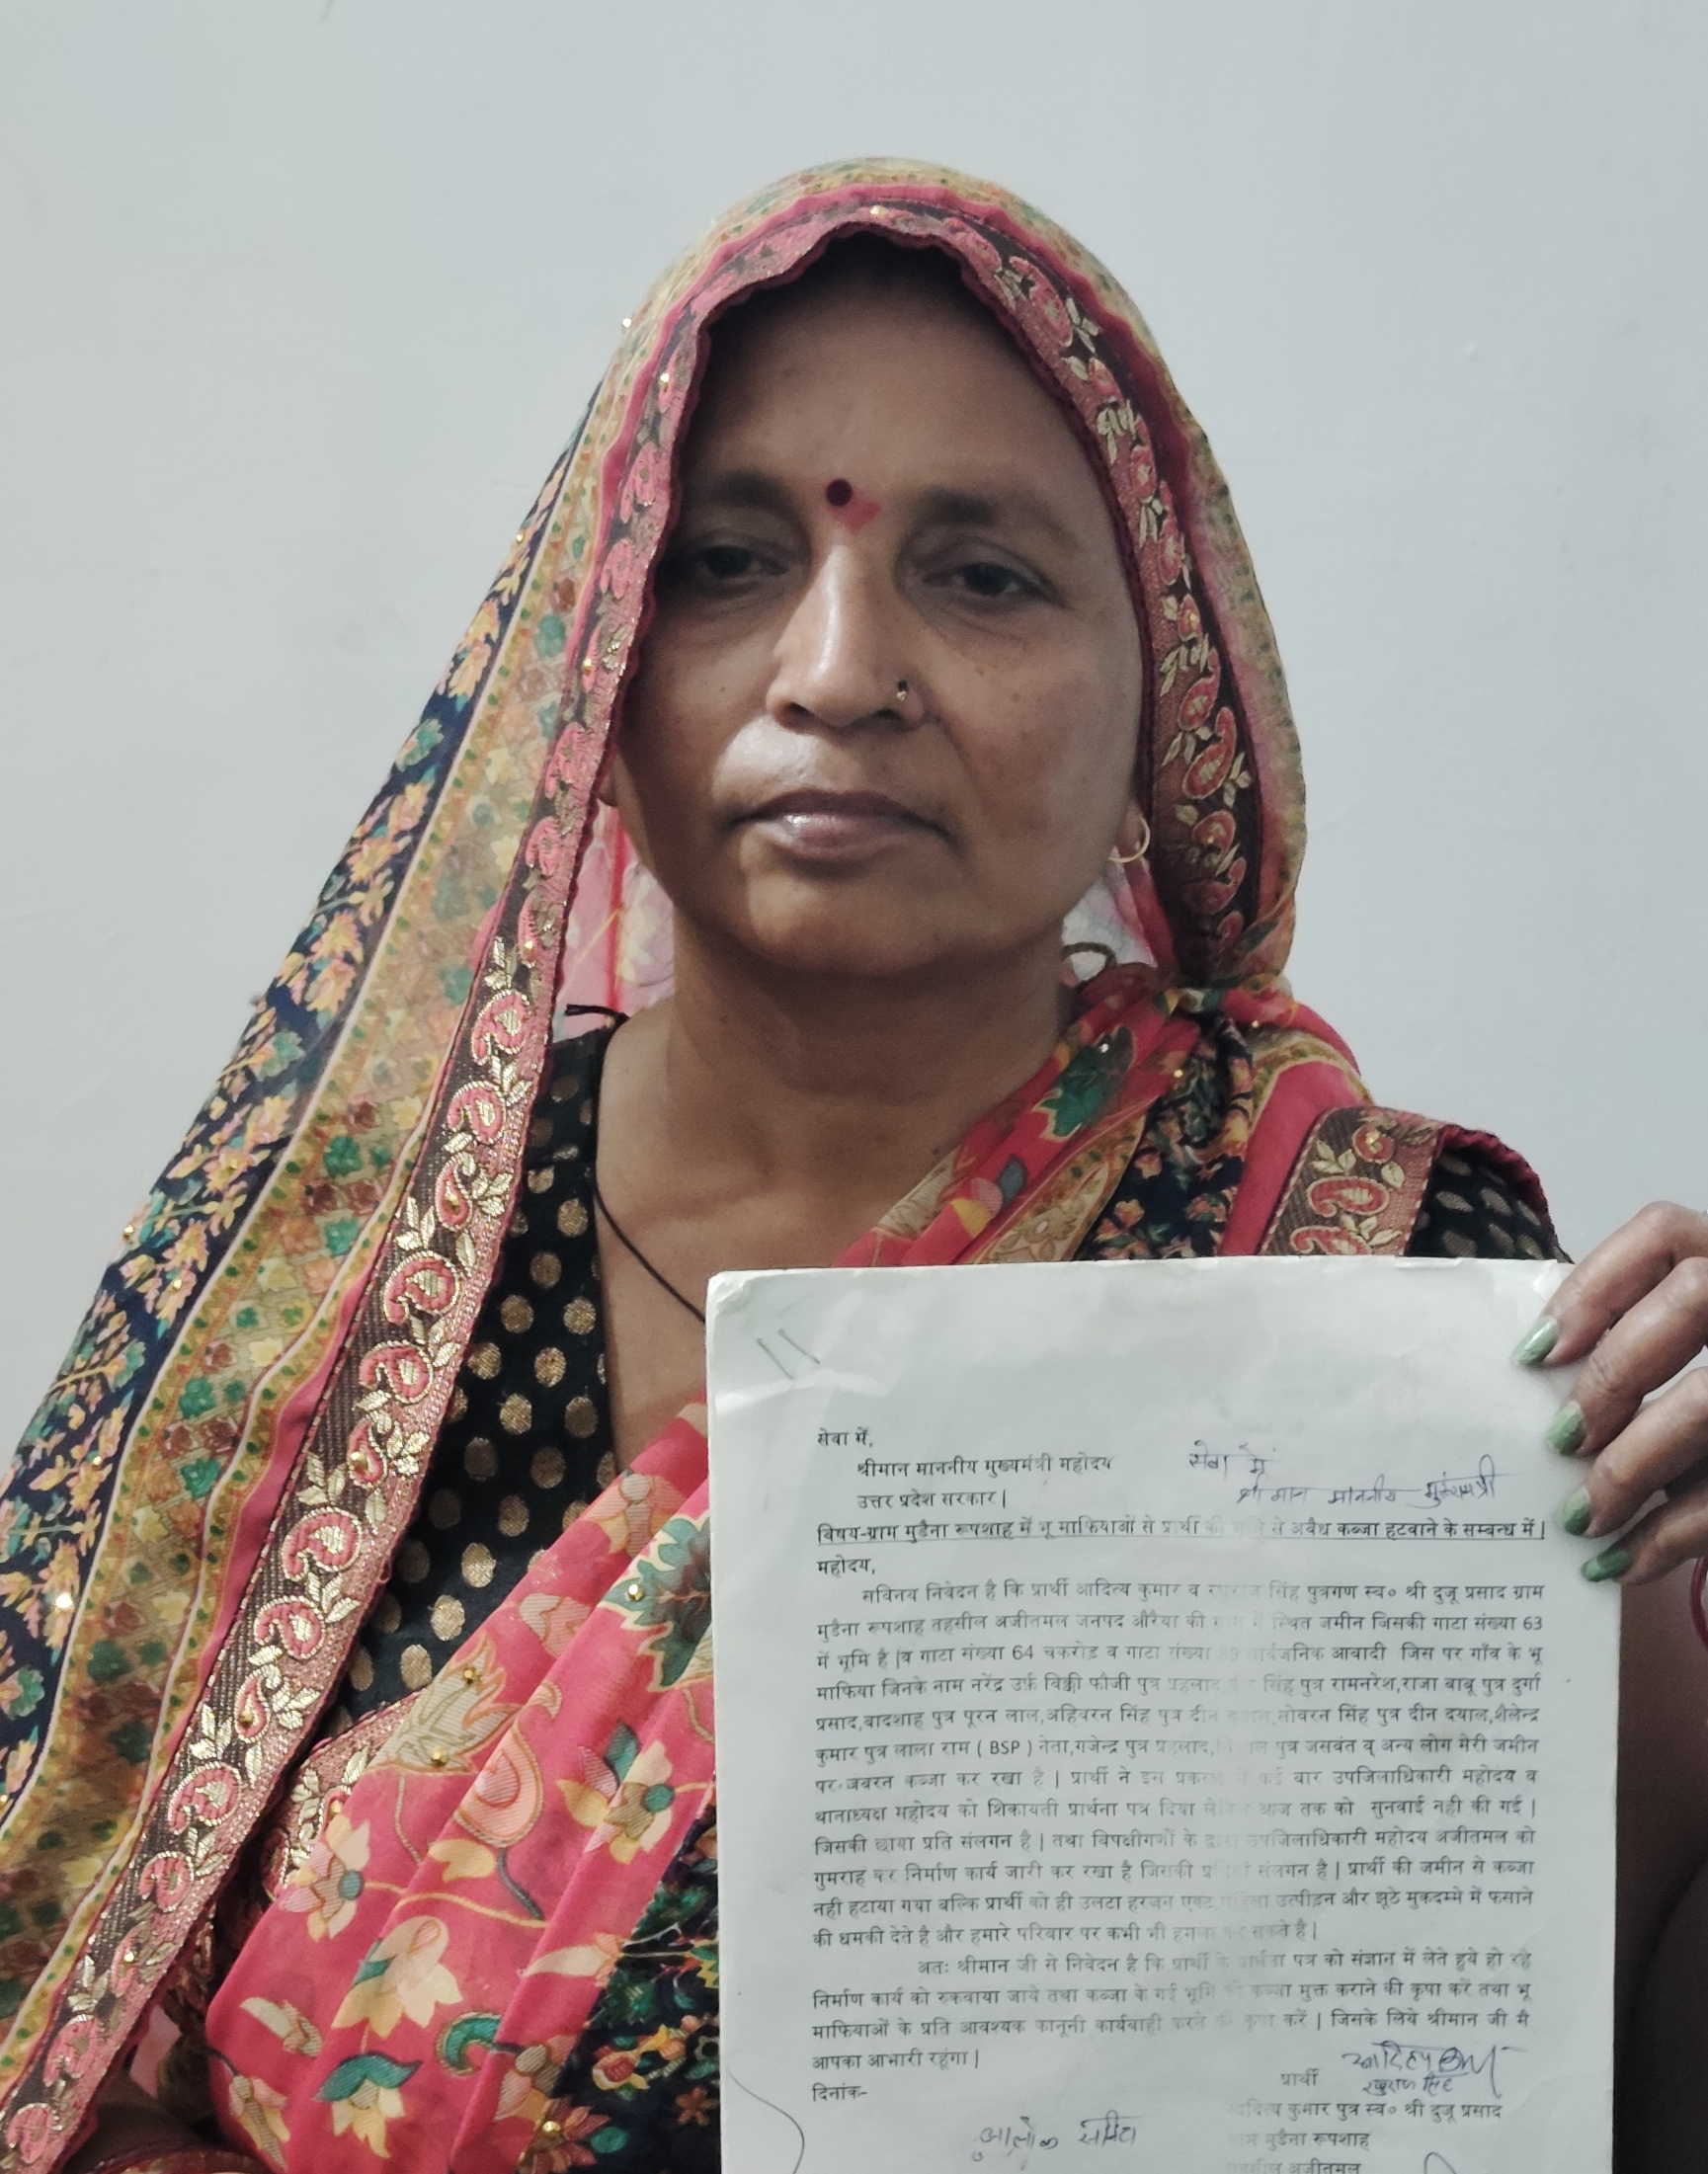 सेवा में,
श्रीमान माननीय मुख्यमंत्री महोदय
उत्तर प्रदेश सरकार|
सेवा में
श्री मान माननीय मुख्यमंत्री
विषय-ग्राम मुडैना रूपशाह में भू माफियाओं से प्रार्थी की भूमि से अवैध कब्जा हटवाने के सम्बन्ध में|
महोदय,
सविनय निवेदन है कि प्रार्थी आदित्य कुमार व रघुराज सिंह पुत्रगण स्व० श्री दुजू प्रसाद ग्राम
मुडैना रूपशाह तहसील अजीतमल जनपद औरैया की ग्राम में स्थित जमीन जिसकी गाटा संख्या 63
में भूमि है |व गाटा संख्या 64 चकरोड़ व गाटा संख्या 89 सार्वजनिक आवादी जिस पर गाँव के भू
माफिया जिनके नाम नरेंद्र उर्फ़ विक्की फौजी पुत्र प्रहलाद, सिंह पुत्र रामनरेश,राजा बाबू पुत्र दुर्गा
प्रसाद,बादशाह पुत्र पूरन लाल,अहिवरन सिंह पुत्र दीन दयाल,सोवरन सिंह पुत्र दीन दयाल,शैलेन्द्र
कुमार पुत्र लाला राम ( BSP ) नेता,गजेन्द्र पुत्र प्रहलाद, पुत्र जसवंत व् अन्य लोग मेरी जमीन
पर जबरन कब्जा कर रखा है | प्रार्थी ने इस प्रकरण में कई बार उपजिलाधिकारी महोदय व
थानाध्यक्ष महोदय को शिकायती प्रार्थना पत्र दिया लेकिन आज तक को सुनवाई नही की गई |
जिसकी छाया प्रति संलगन है | तथा विपक्षीगणों के द्वारा उपजिलाधिकारी महोदय अजीतमल को
गुमराह कर निर्माण कार्य जारी कर रखा है जिसकी प्रतियाँ संलगन है | प्रार्थी की जमीन से कब्जा
नही हटाया गया बल्कि प्रार्थी को ही उलटा हरजन एक्ट,महिला उत्पीड़न और झूठे मुकदम्मे में फसाने
की धमकी देते है और हमारे परिवार पर कभी भी हमला कर सकते है |
अतः श्रीमान जी से निवेदन है कि प्रार्थी के प्रार्थना पत्र को संज्ञान में लेते हुये हो रहे
निर्माण कार्य को रुकवाया जाये तथा कब्जा के गई भूमि को कब्जा मुक्त कराने की कृपा करें तथा भू
माफियाओं के प्रति आवश्यक कानूनी कार्यवाही करने की कृपा करें | जिसके लिये श्रीमान जी मै
आपका आभारी रहूंगा |
दिनांक-
प्रार्थी
रघुराज सिंह
आदित्य कुमार पुत्र स्व० श्री दुजू प्रसाद
ग्राम मुडैना रूपशाह
तहसील अजीतमल